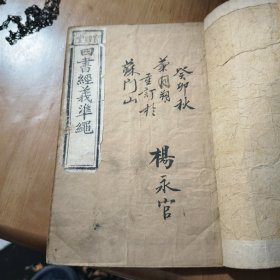 四書經義準繩
癸卯秋
菊月朔
重訂於
蘇門山
楊永官